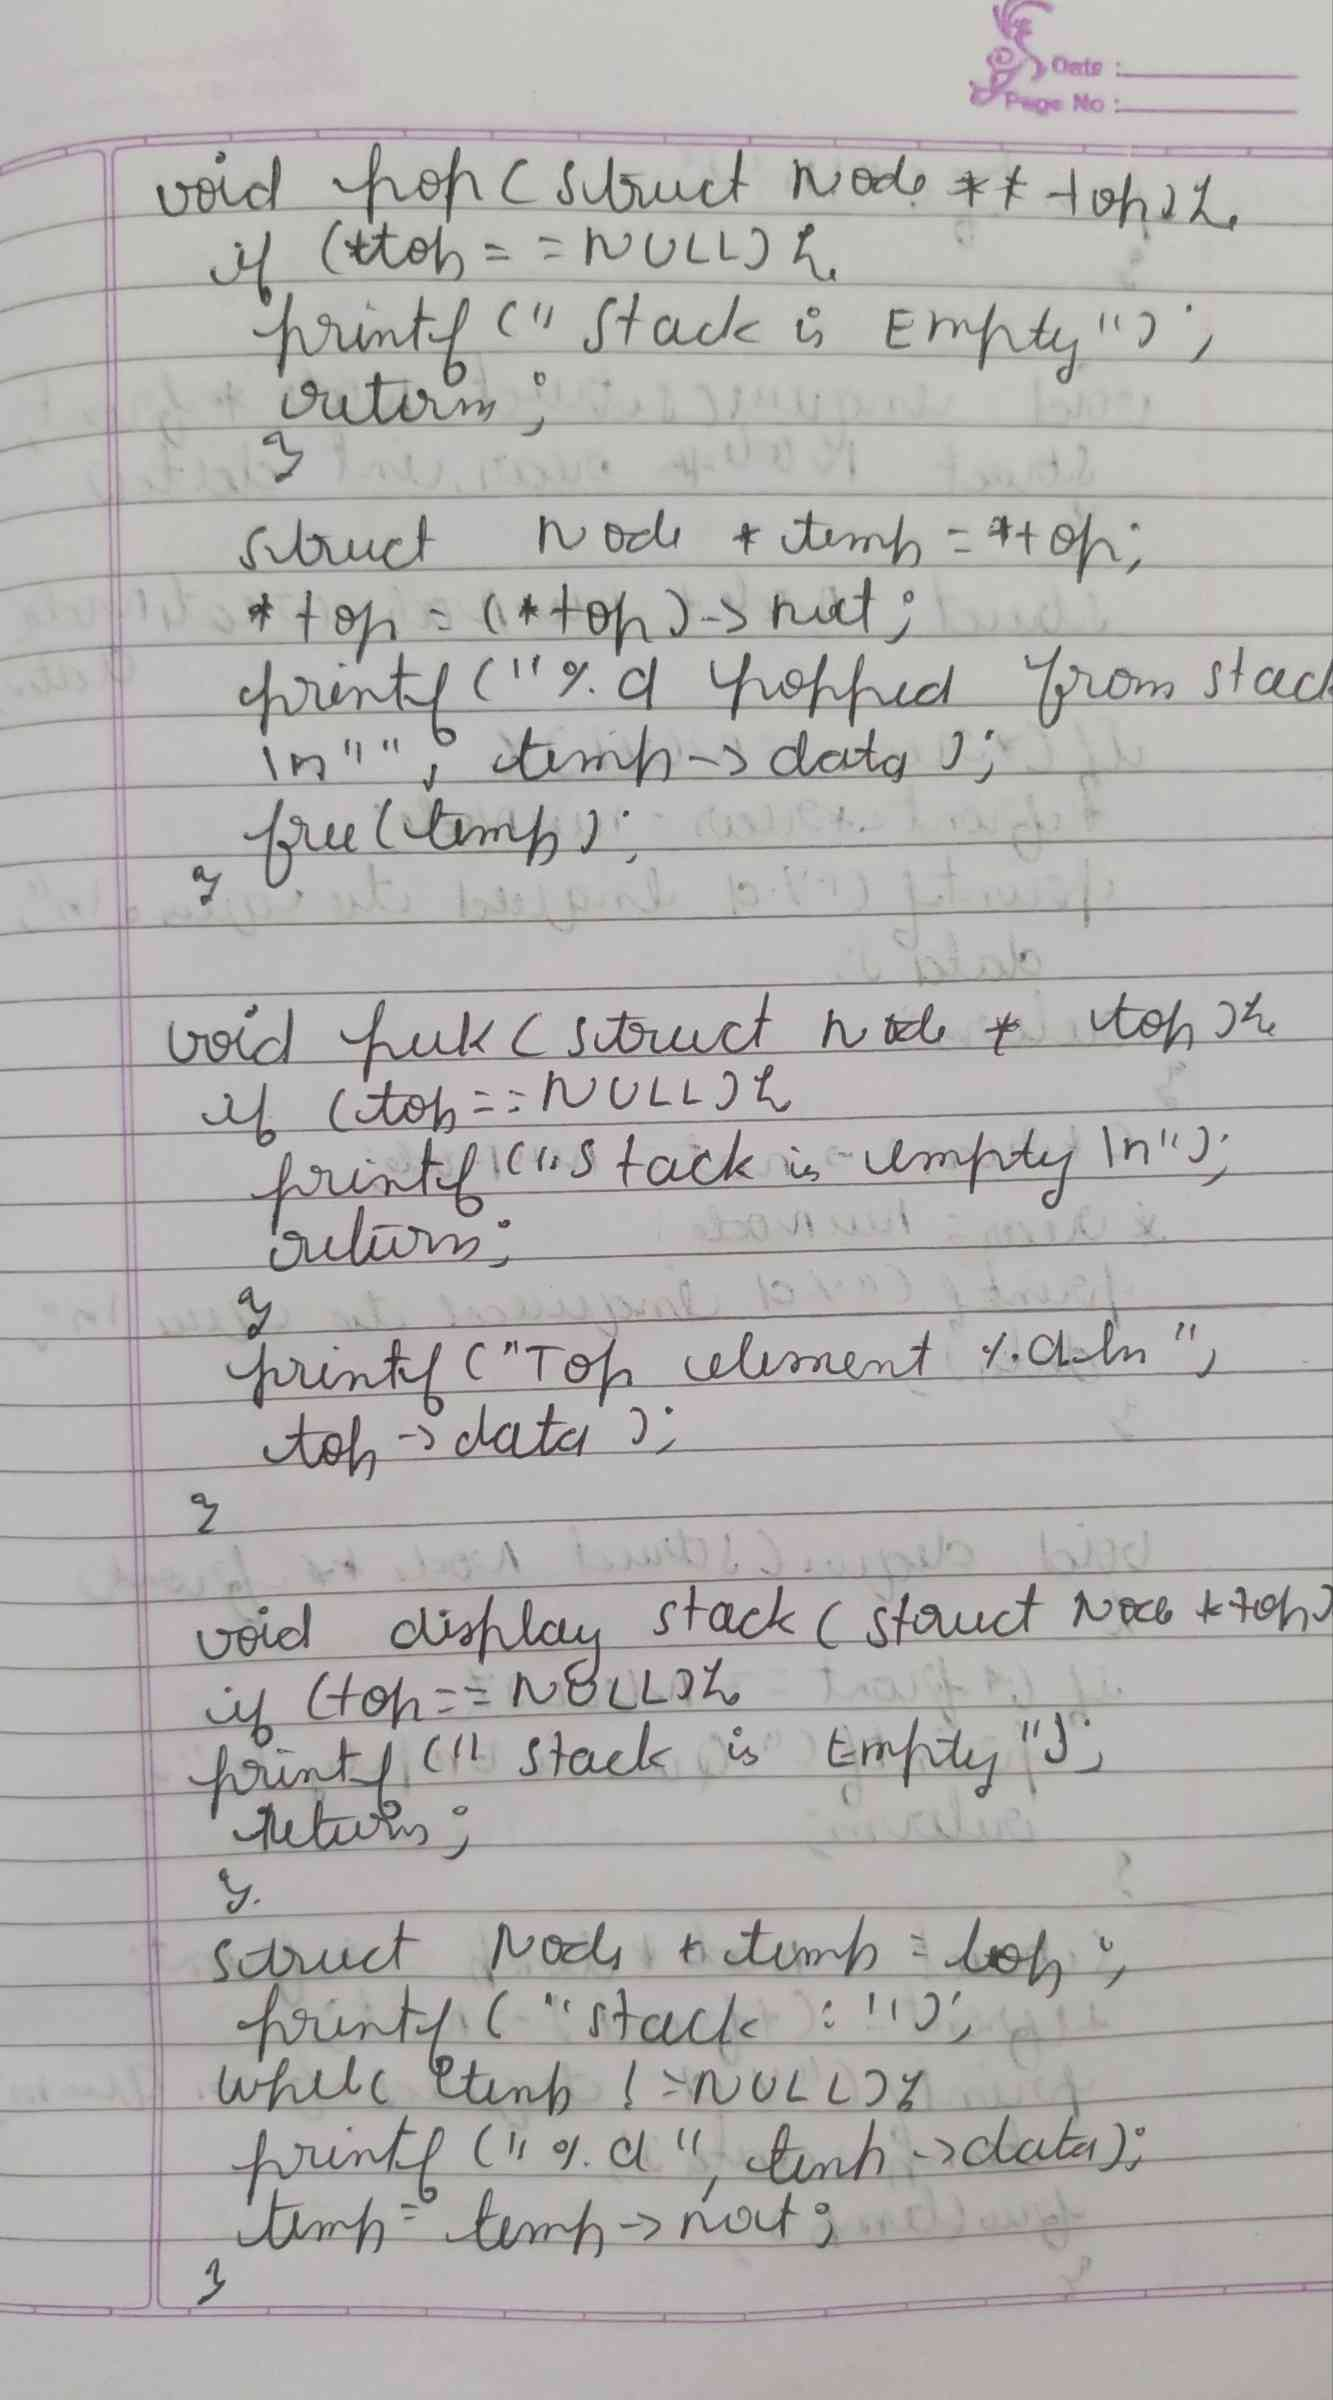 Date :
Page No :
void pop(struct Node **top){
if (*top==NULL){
printf("Stack is Empty");
return;
}
struct Node *temp=*top;
*top=(*top)->next;
printf("%d popped from stack
\n"", temp->data);
free(temp);
}
void peek(struct Node * top){
if (top==NULL){
printf("Stack is empty\n");
return;
}
printf("Top element %d\n",
top->data);
}
void display stack(struct Node *top)
if (top==NULL){
printf("stack is Empty");
return;
}
struct Node *temp=top;
printf("stack :");
while (temp !=NULL){
printf("%d", temp->data);
temp=temp->next;
}